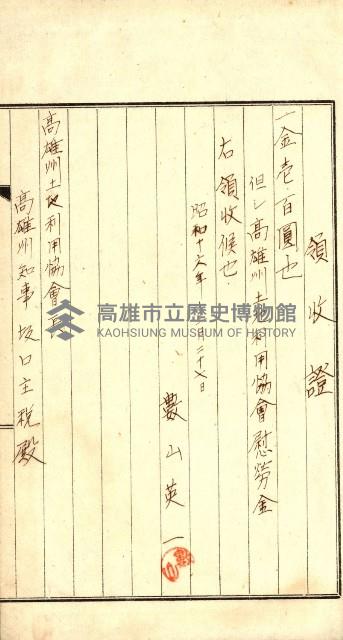 領收證
一金壱百圓也
但シ高雄州土地利用協會慰勞金
右領收候也
昭和十六年 月二十 日
數山英一
高雄州土地利用協會
高雄州知事坂口主税殿
高雄市立歷史博物館
KAOHSIUNG MUSEUM OF HISTORY